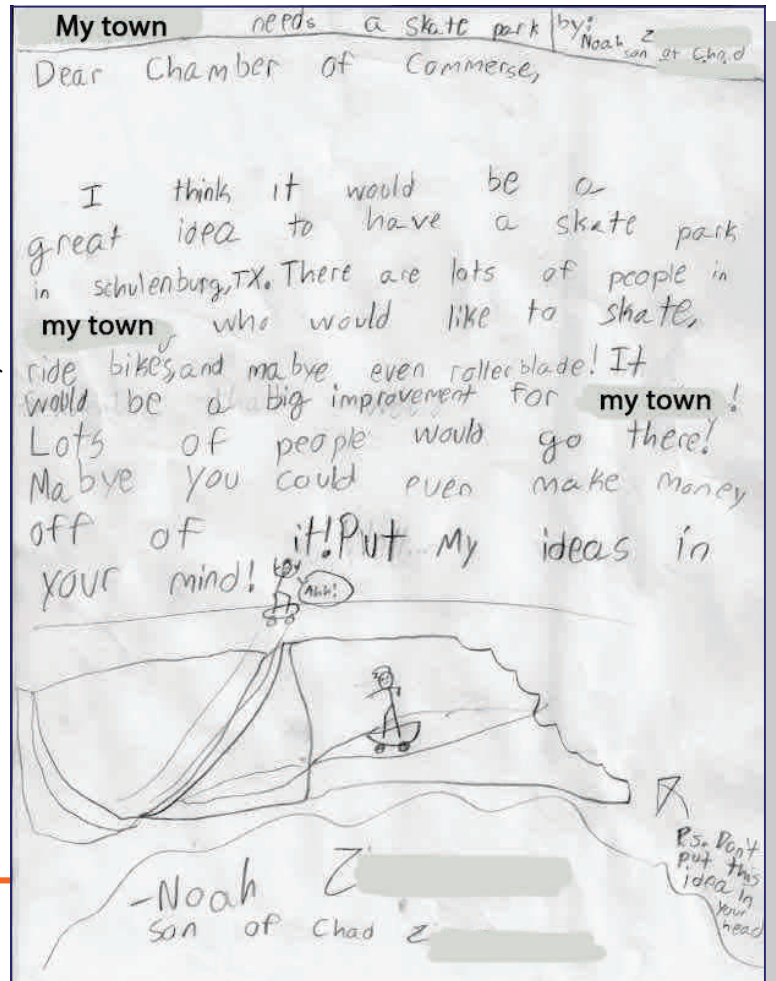 My town needs a skate park
by:
Noah Z
son of Chad
Dear Chamber of Commerse,
I think it would be a
great idea to have a skate park
in schulenburg,TX. There are lots of people in
my town who would like to skate,
ride bikes, and mabye even rollerblade! It
would be a big improvement for my town!
Lots of people would go there!
Mabye you could even make money
off of it! Put My ideas in
your mind!
Ahh!
P.s. Don't
put this
idea in
your
head
-Noah Z
son of Chad Z